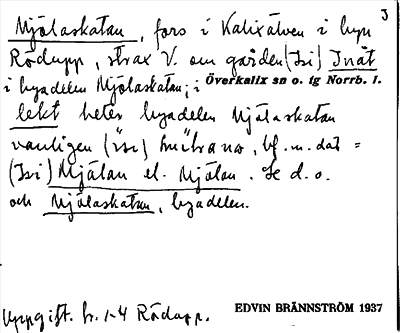 3
Mjölaskatan, fors i Kalixälven i byn
Rödupp, strax V. om gården (isi) Inåt
i byadelen Mjölaskatan; i Överkalix sn o. tg Norrb. l.
lekt heter byadelen Mjölaskatan
vanligen (isi)
(isi) Mjölan el. Mjölan. Se d.o.
och Mjölaskatan, byadelen.
Uppgift. fr. 1-4 Rödupp.
EDVIN BRÄNNSTRÖM 1937